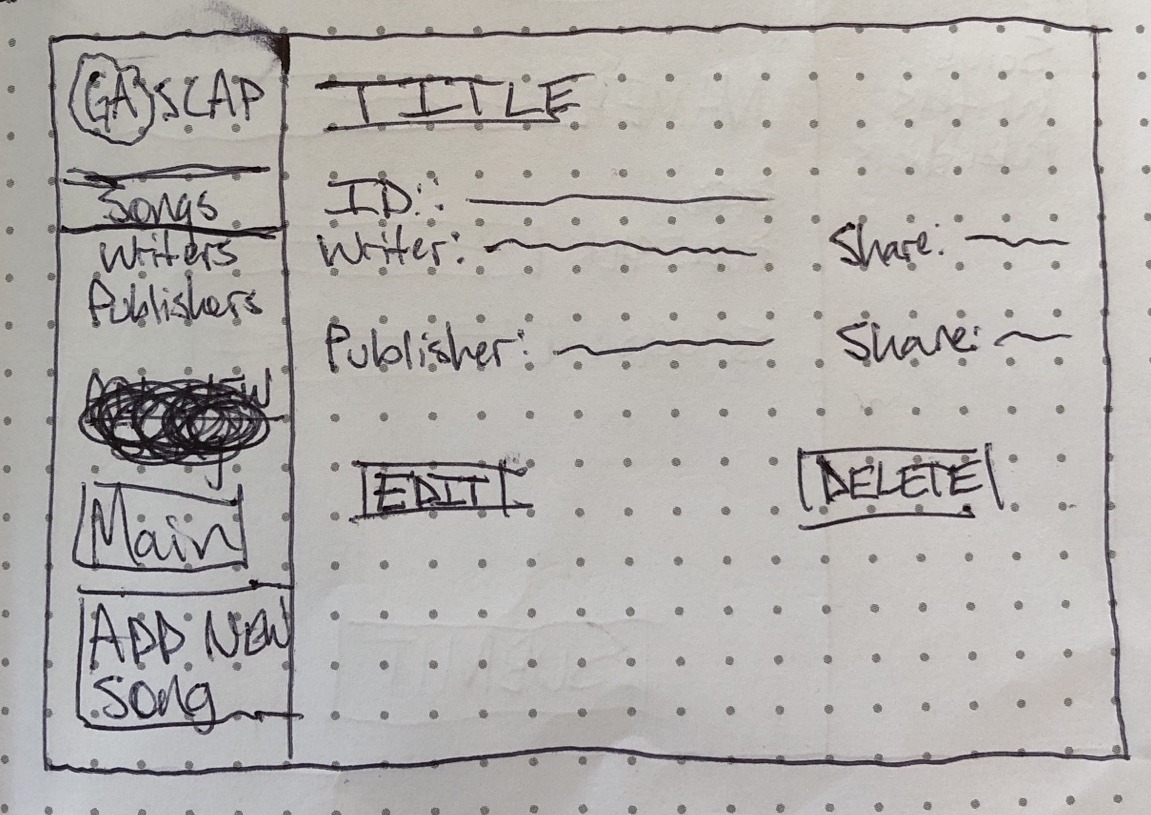 GASCAP
Songs
Writers
Publishers
Main
ADD NEW
Song
TITLE
ID:
Writer: Share:
Publisher: Share:
EDIT DELETE